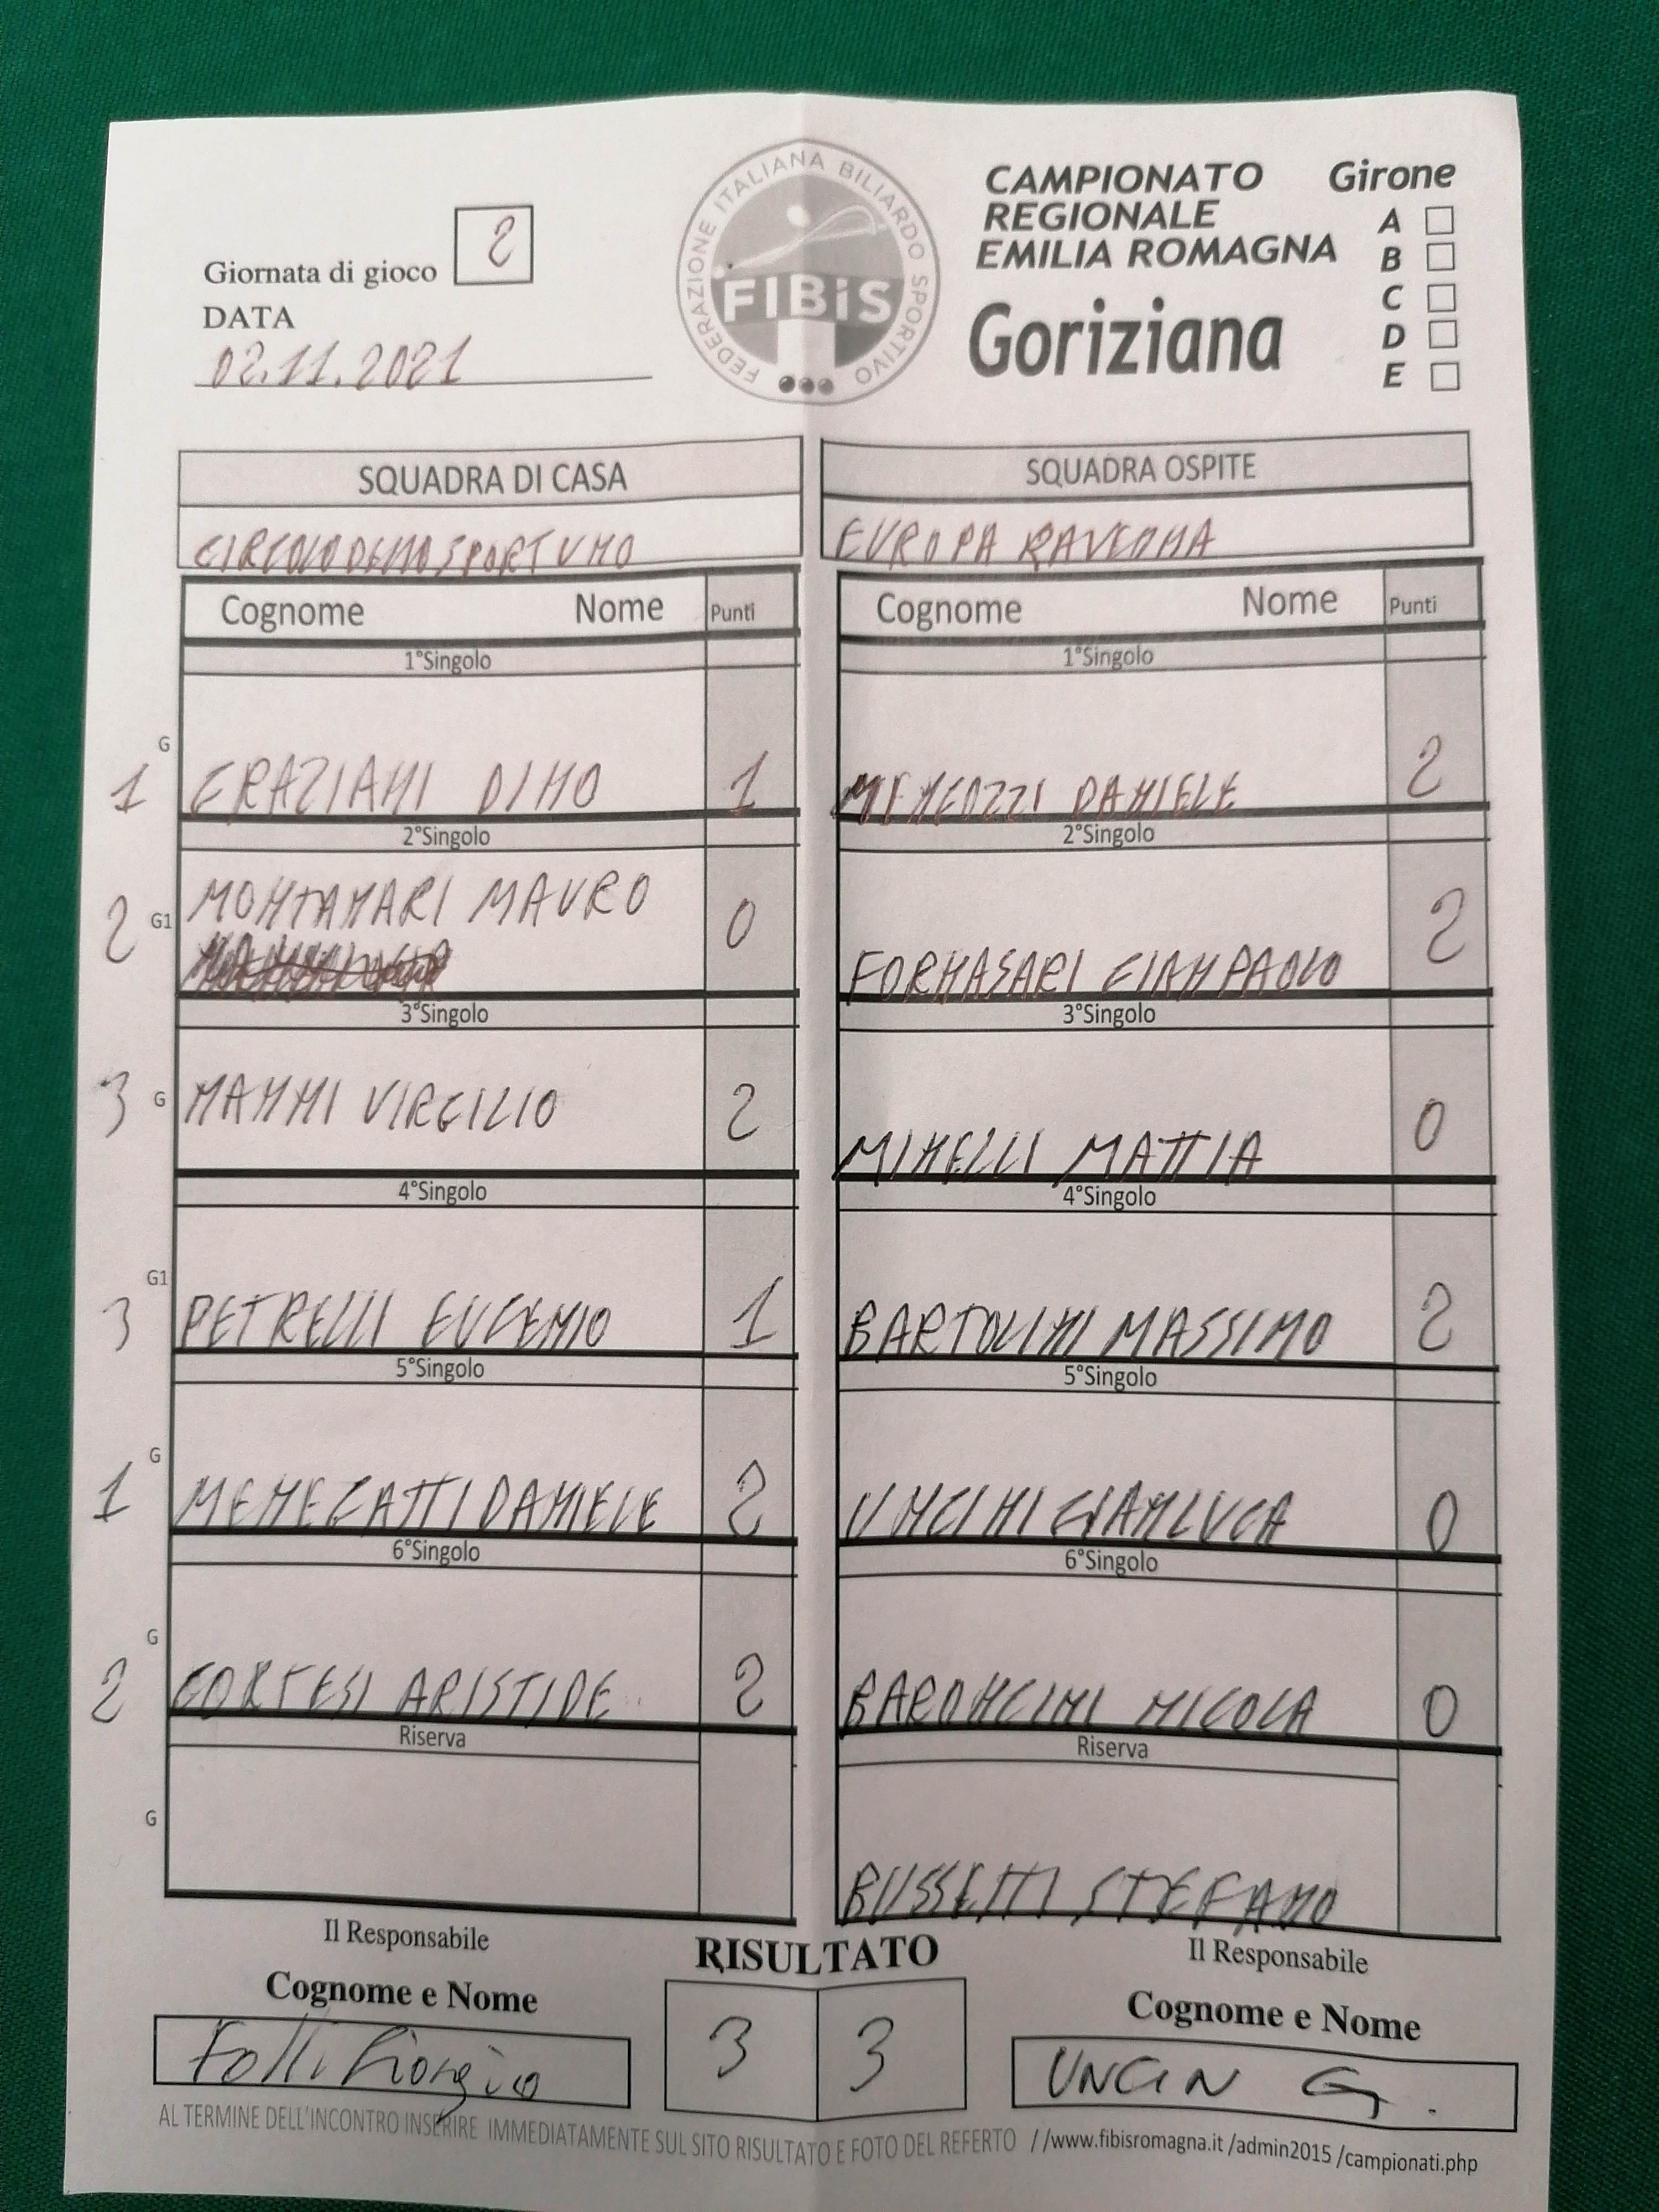 Giornata di gioco 2
DATA
02.11.2021
FEDERAZIONE ITALIANA BILIARDO SPORTIVO
FIBiS
CAMPIONATO
REGIONALE
EMILIA ROMAGNA
Goriziana
Girone
A
B
C
D
E
SQUADRA DI CASA
SQUADRA OSPITE
EUROPA RAVENNA
Cognome Nome Punti
Cognome Nome Punti
1°Singolo
1°Singolo
G
1 GRAZIANI DINO 1
MENCOZZI DANIELE 2
2°Singolo
2°Singolo
2 G1 MONTANARI MAURO 0
FORNASARI GIANPAOLO 2
3°Singolo
3°Singolo
3 G NANNI VIRGILIO 2
MINELLI MATTIA 0
4°Singolo
4°Singolo
G1
3 PETRELLI EUGENIO 1
BARTOLINI MASSIMO 2
5°Singolo
5°Singolo
G
1 MENEGATTI DANIELE 2
UNCINI GIANLUCA 0
6°Singolo
6°Singolo
G
2 CORTESI ARISTIDE 2
BARONCINI NICOLA 0
Riserva
Riserva
G
BUSSETTI STEFANO
Il Responsabile
Il Responsabile
RISULTATO
Cognome e Nome
Cognome e Nome
Folli Giorgio
3 3
UNCIN G.
AL TERMINE DELL'INCONTRO INSERIRE IMMEDIATAMENTE SUL SITO RISULTATO E FOTO DEL REFERTO //www.fibisromagna.it /admin2015 /campionati.php